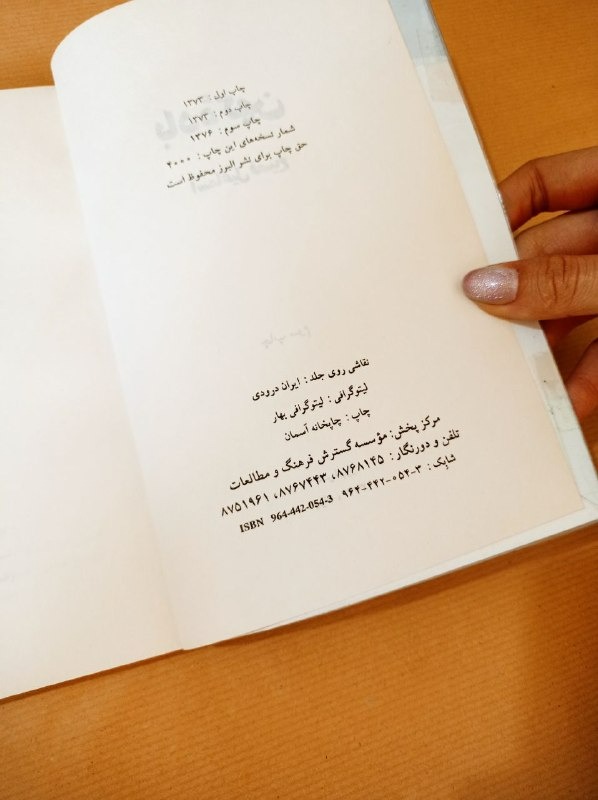 چاپ اول : ۱۳۷۳
چاپ دوم : ۱۳۷۳
چاپ سوم : ۱۳۷۶
شمار نسخه‌های این چاپ : ۴۰۰۰
حق چاپ برای نشر البرز محفوظ است
نقاشی روی جلد : ایران درودی
لیتوگرافی : لیتوگرافی بهار
چاپ : چاپخانه آسمان
مرکز پخش: مؤسسه گسترش فرهنگ و مطالعات
تلفن و دورنگار : ۸۷۶۸۱۴۵ ،۸۷۶۷۴۴۳ ،۸۷۵۱۹۶۱
شابک : ۳-۰۵۴-۴۴۲-۹۶۴ ISBN 964-442-054-3